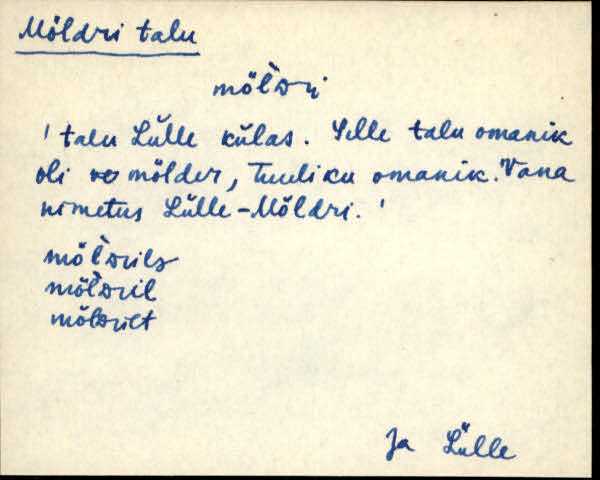 Möldri talu
möl̀dri
' talu Lülle külas. Selle talu omanik
oli mölder, Tuuliku omanik. Vana
nimetus Lülle-Möldri. '
möl̀drils
möl̀dril
möldrilt
Ja Lülle